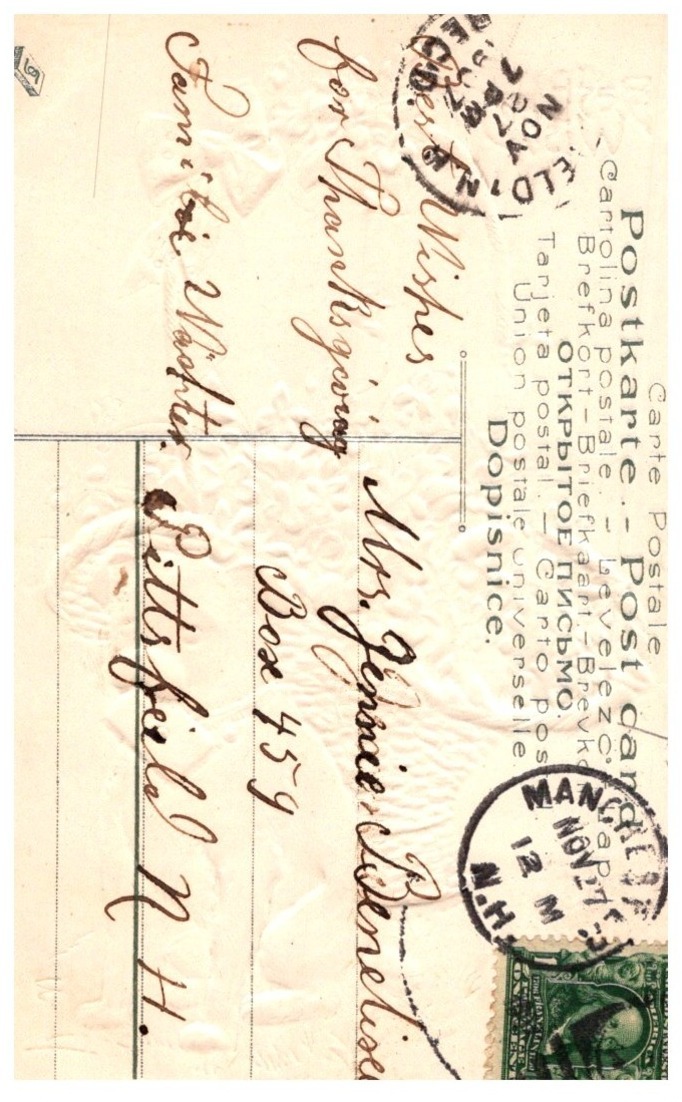 Carte Postale
Postkarte - Post card
Cartolina postale. - Levelező-Lap
Brefkort-Briefkaart-Brevkort
ОТКРЫТОЕ ПИСЬМО.
Tarjeta postal. - Carto pos
Union postale universelle
Dopisnice.
ELD, N.H.
NOV
27
7 PM
REC'D.
MANCHESTER
NOV 27
12 M
N.H.
Best Wishes
for Thanksgiving
Familie Wachter.
Mrs. Jennie
Box 459
Pittsfeild N. H.